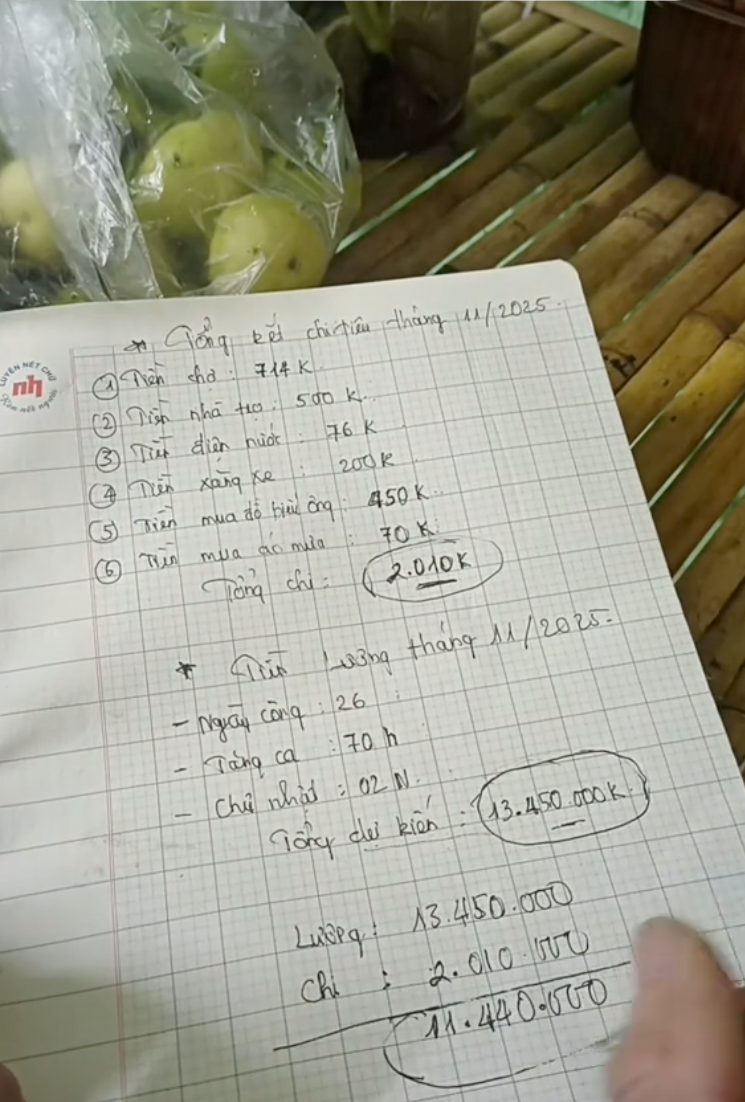 * Tổng kết chi tiêu tháng 11/2025.
LUYỆN NÉT CHỮ
nh
Rèn nết người
① Tiền chợ : 714 K
② Tiền nhà trọ : 500 K.
③ Tiền điện nước : 76 K
④ Tiền xăng xe : 200K
⑤ Tiền mua đồ biếu ông : 450 K.
⑥ Tiền mua áo mưa : 70 K
Tổng chi : 2.010 K
* Tiền lương tháng 11/2025.
- Ngày công : 26
- Tăng ca : 70 h
- Chủ nhật : 02 N.
Tổng dự kiến : 13.450.000K.
Lương : 13.450.000
Chi : 2.010.000
11.440.000